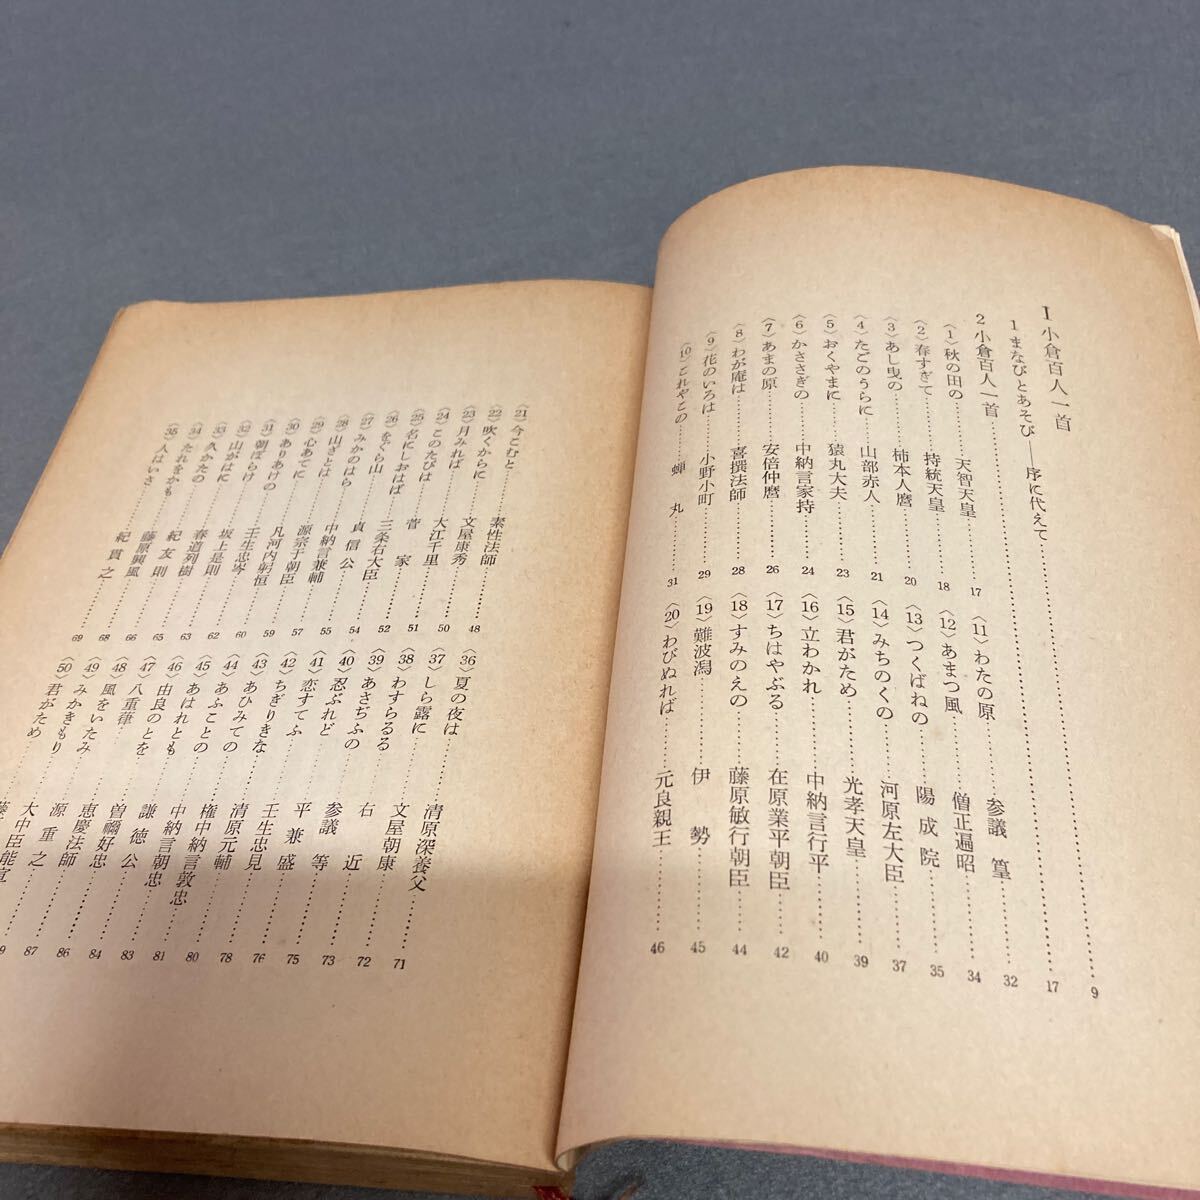 I 小倉百人一首
1 まなびとあそび——序に代えて……9
2 小倉百人一首……17
〈1〉秋の田の……天智天皇……17
〈2〉春すぎて……持統天皇……18
〈3〉あし曳の……柿本人麿……20
〈4〉たごのうらに……山部赤人……21
〈5〉おくやまに……猿丸大夫……23
〈6〉かささぎの……中納言家持……24
〈7〉あまの原……安倍仲麿……26
〈8〉わが庵は……喜撰法師……28
〈9〉花のいろは……小野小町……29
〈10〉これやこの……蝉丸……31
〈11〉わたの原……参議篁……32
〈12〉あまつ風……僧正遍昭……34
〈13〉つくばねの……陽成院……35
〈14〉みちのくの……河原左大臣……37
〈15〉君がため……光孝天皇……39
〈16〉立わかれ……中納言行平……40
〈17〉ちはやぶる……在原業平朝臣……42
〈18〉すみのえの……藤原敏行朝臣……44
〈19〉難波潟……伊勢……45
〈20〉わびぬれば……元良親王……46
〈21〉今こむと……素性法師……48
〈22〉吹くからに……文屋康秀……50
〈23〉月みれば……大江千里……51
〈24〉このたびは……菅家……52
〈25〉名にしおはば……三条右大臣……54
〈26〉をぐら山……貞信公……55
〈27〉みかのはら……中納言兼輔……57
〈28〉山ざとは……源宗于朝臣……59
〈29〉心あてに……凡河内躬恒……60
〈30〉ありあけの……壬生忠岑……62
〈31〉朝ぼらけ……坂上是則……63
〈32〉山がはに……春道列樹……65
〈33〉久かたの……紀友則……66
〈34〉たれをかも……藤原興風……68
〈35〉人はいさ……紀貫之……69
〈36〉夏の夜は……清原深養父……71
〈37〉しら露に……文屋朝康……72
〈38〉わすらるる……右近……73
〈39〉あさぢふの……参議等……75
〈40〉忍ぶれど……平兼盛……76
〈41〉恋すてふ……壬生忠見……78
〈42〉ちぎりきな……清原元輔……80
〈43〉あひみての……権中納言敦忠……81
〈44〉あふことの……中納言朝忠……83
〈45〉あはれとも……謙徳公……84
〈46〉由良のとを……曽禰好忠……86
〈47〉八重葎……恵慶法師……87
〈48〉風をいたみ……源重之
〈49〉みかきもり……大中臣能宣
〈50〉君がため